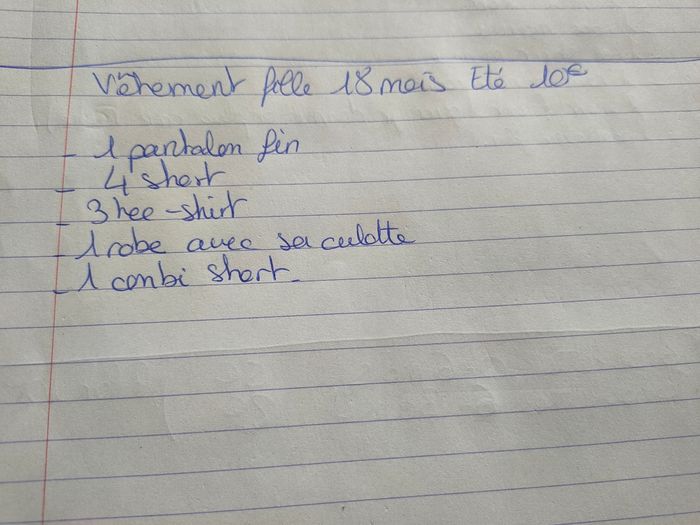 Vêtement fille 18 mois Eté 10€
- 1 pantalon fin
- 4 short
- 3 tee-shirt
- 1 robe avec sa culotte
- 1 combi short.